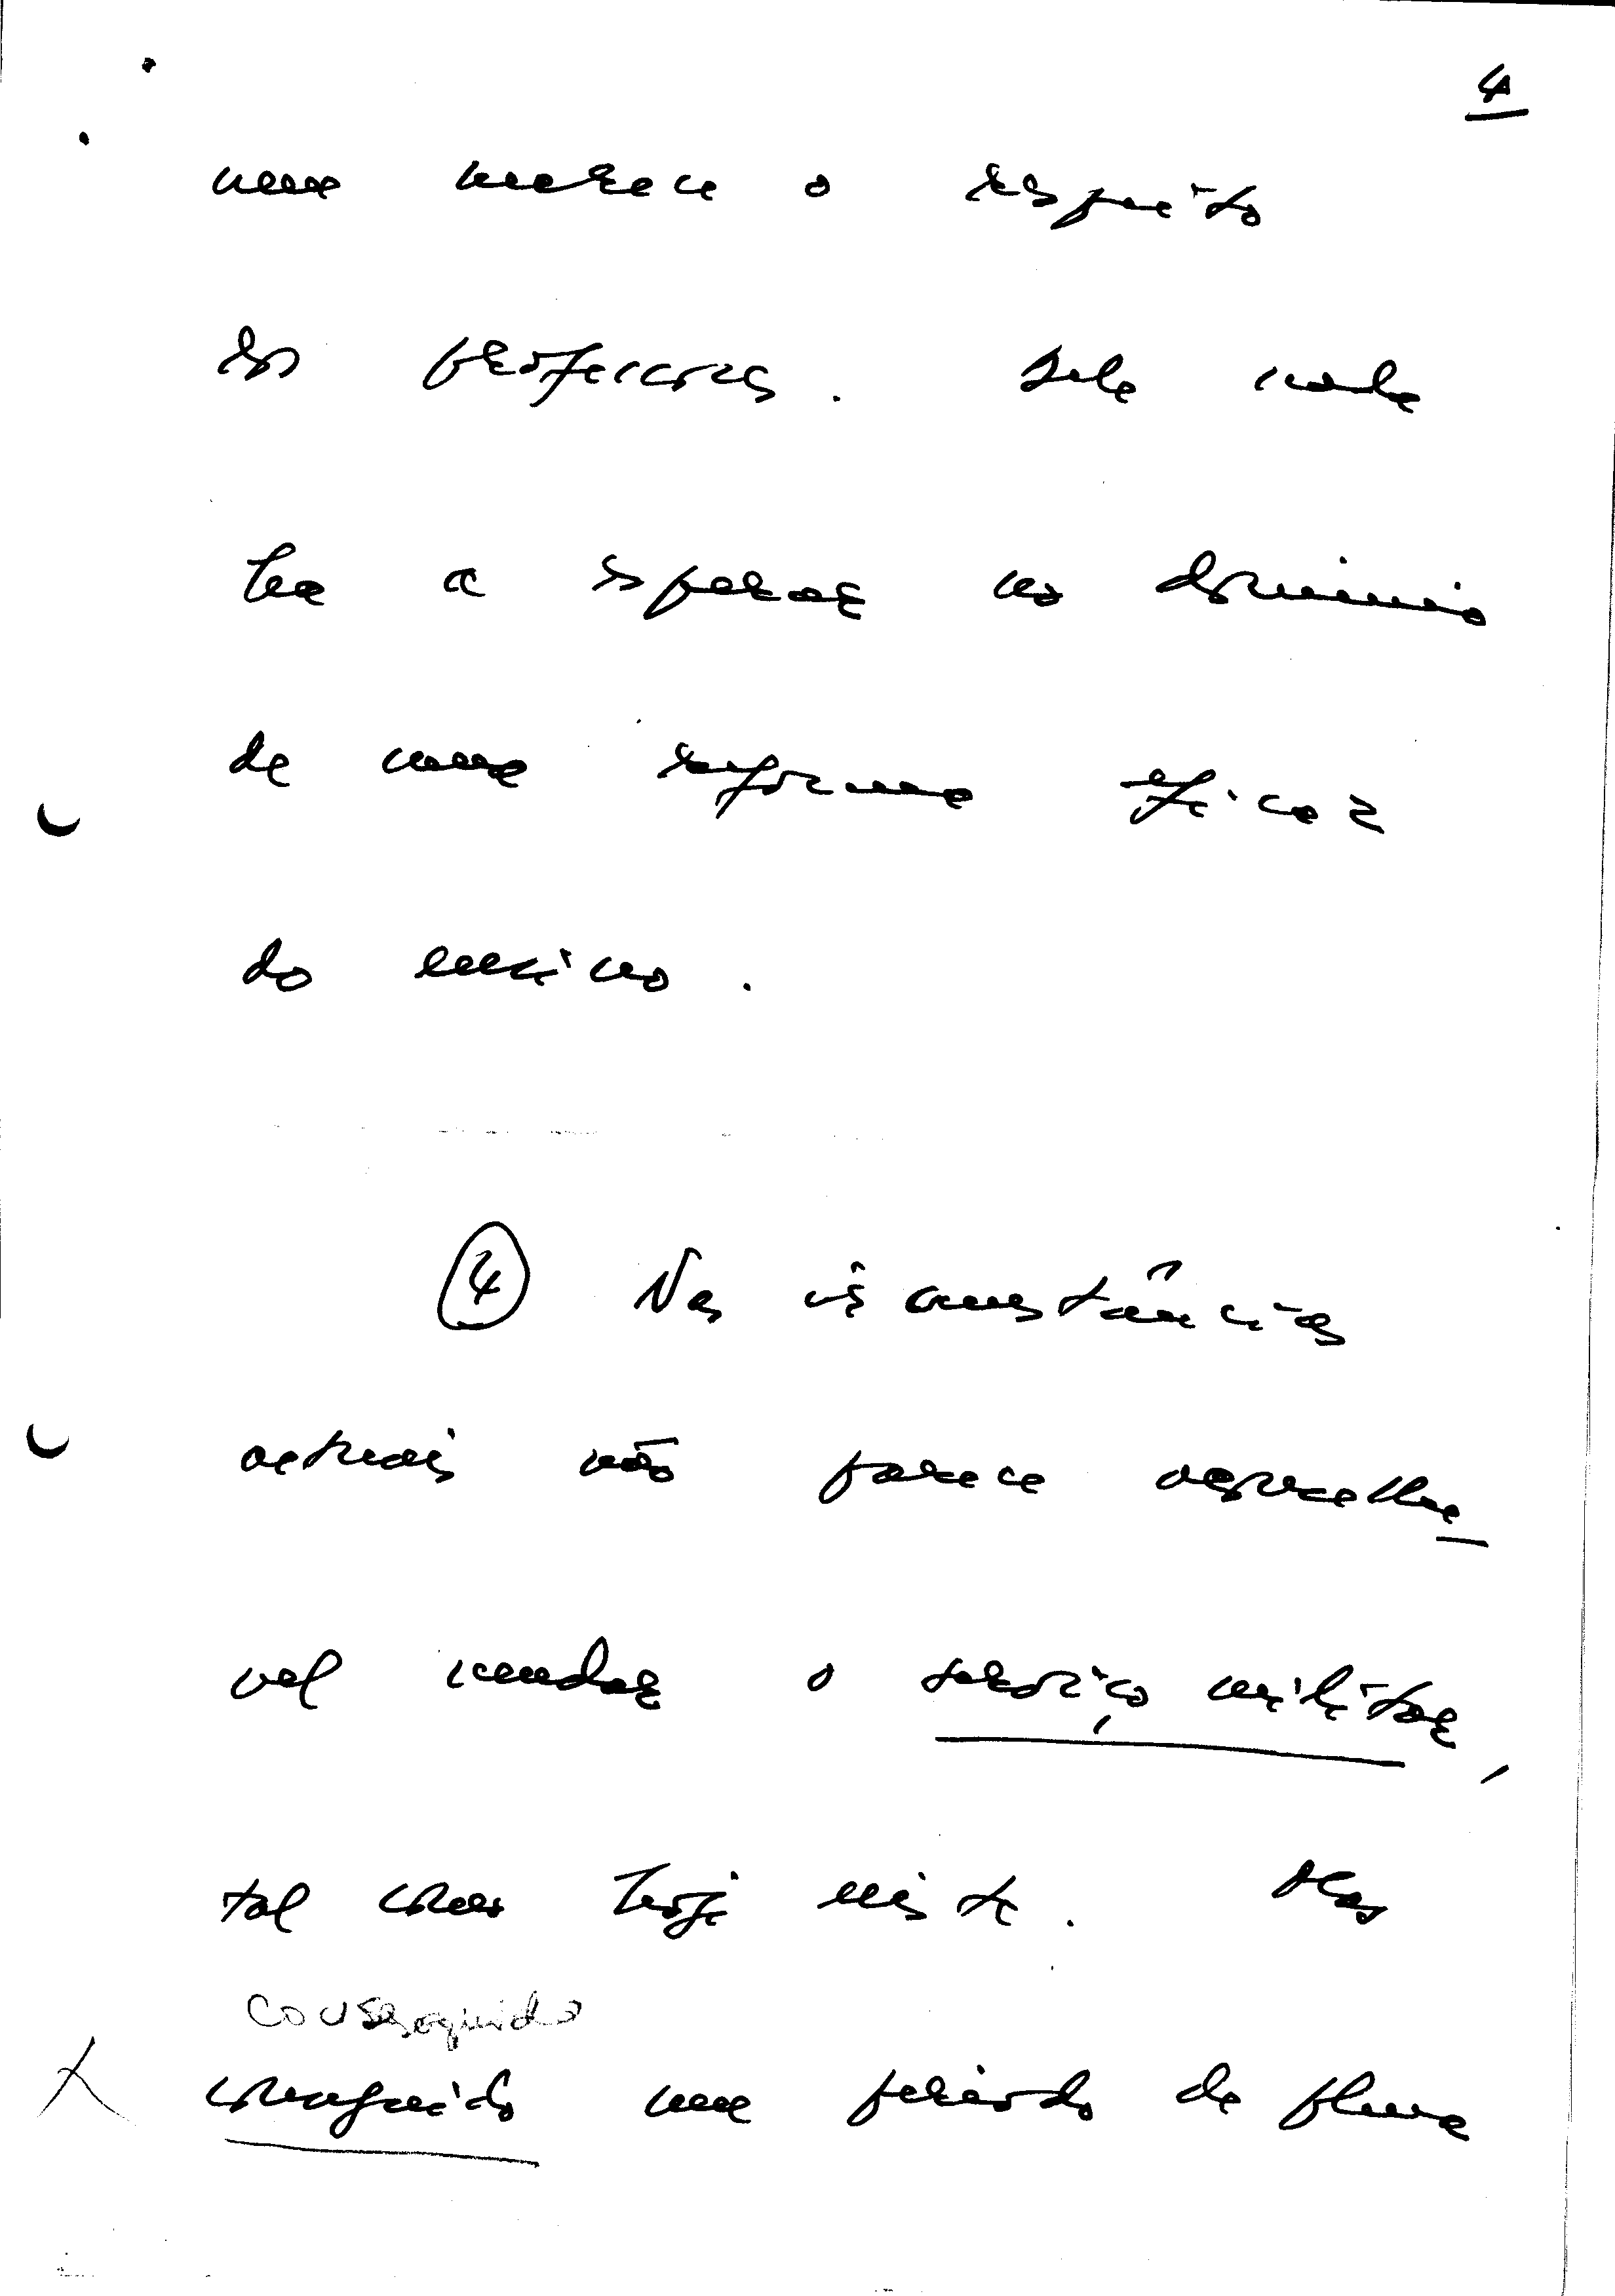 4
nem merece o respeito
dos professores. Dele nada
há a esperar no domínio
de uma reforma eficaz
do ensino.
④ Nas circunstâncias
actuais não parece aconselhá-
vel mudar o serviço militar,
tal como hoje existe. Mas
conseguido
conseguido um período de plena